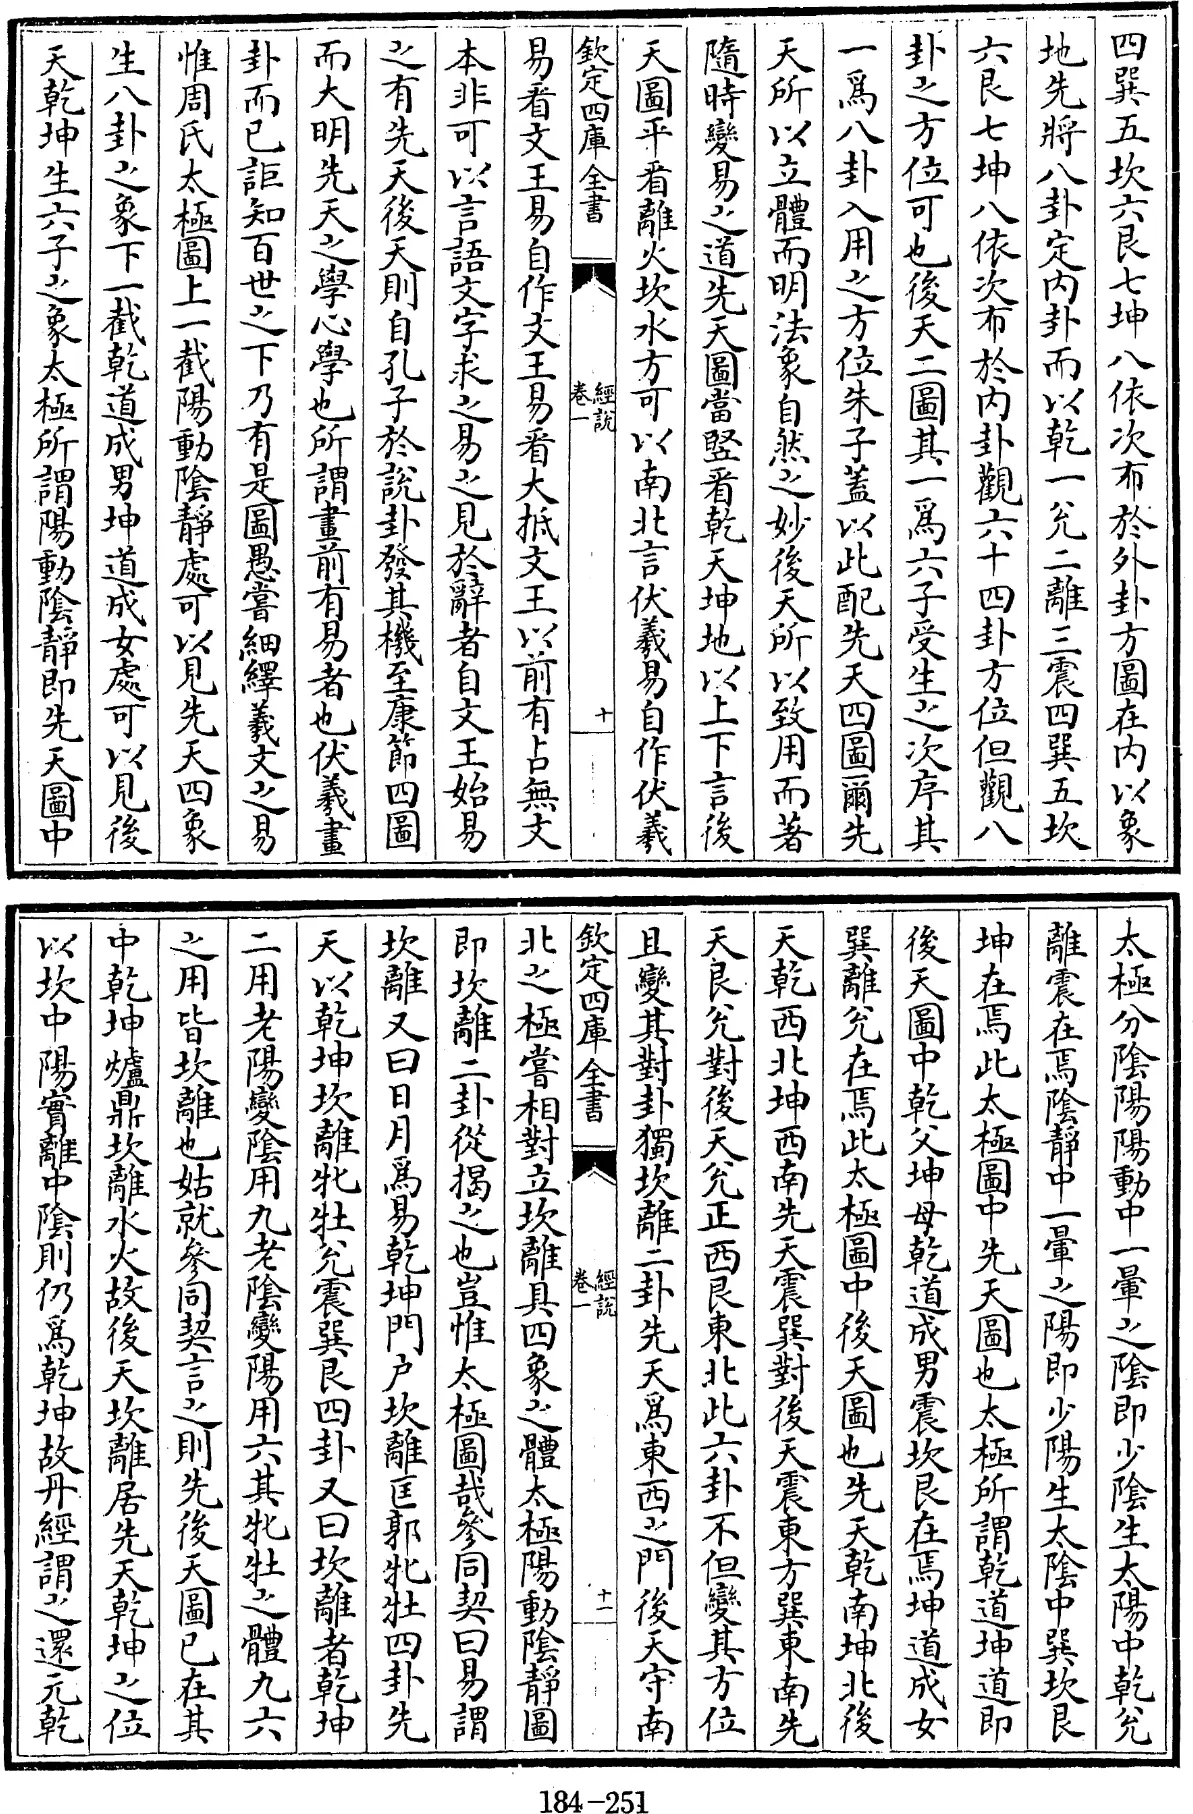 四巽五坎六艮七坤八依次布於外卦方圖在内以象
地先將八卦定内卦而以乾一兊二離三震四巽五坎
六艮七坤八依次布於内卦觀六十四卦方位但觀八
卦之方位可也後天二圖其一爲六子受生之次序其
一爲八卦入用之方位朱子蓋以此配先天四圖爾先
天所以立體而明法象自然之妙後天所以致用而著
隨時變易之道先天圖當竪看乾天坤地以上下言後
天圖平看離火坎水方可以南北言伏羲易自作伏羲
欽定四庫全書
經說
卷一
十
易看文王易自作文王易看大抵文王以前有占無文
本非可以言語文字求之易之見於辭者自文王始易
之有先天後天則自孔子於說卦發其機至康節四圖
而大明先天之學心學也所謂畫前有易者也伏羲畫
卦而已詎知百世之下乃有是圖愚嘗細繹羲文之易
惟周氏太極圖上一截陽動陰靜處可以見先天四象
生八卦之象下一截乾道成男坤道成女處可以見後
天乾坤生六子之象太極所謂陽動陰靜即先天圖中
太極分陰陽陽動中一暈之陰即少陰生太陽中乾兊
離震在焉陰靜中一暈之陽即少陽生太陰中巽坎艮
坤在焉此太極圖中先天圖也太極所謂乾道坤道即
後天圖中乾父坤母乾道成男震坎艮在焉坤道成女
巽離兊在焉此太極圖中後天圖也先天乾南坤北後
天乾西北坤西南先天震巽對後天震東方巽東南先
天艮兊對後天兊正西艮東北此六卦不但變其方位
且變其對卦獨坎離二卦先天爲東西之門後天守南
欽定四庫全書
經說
卷一
十一
北之極嘗相對立坎離具四象之體太極陽動陰靜圖
即坎離二卦從揭之也豈惟太極圖哉參同契曰易謂
坎離又曰日月爲易乾坤門户坎離匡郭牝牡四卦先
天以乾坤坎離牝牡兊震巽艮四卦又曰坎離者乾坤
二用老陽變陰用九老陰變陽用六其牝牡之體九六
之用皆坎離也姑就參同契言之則先後天圖已在其
中乾坤爐鼎坎離水火故後天坎離居先天乾坤之位
以坎中陽實離中陰則仍爲乾坤故丹經謂之還元乾
184-251